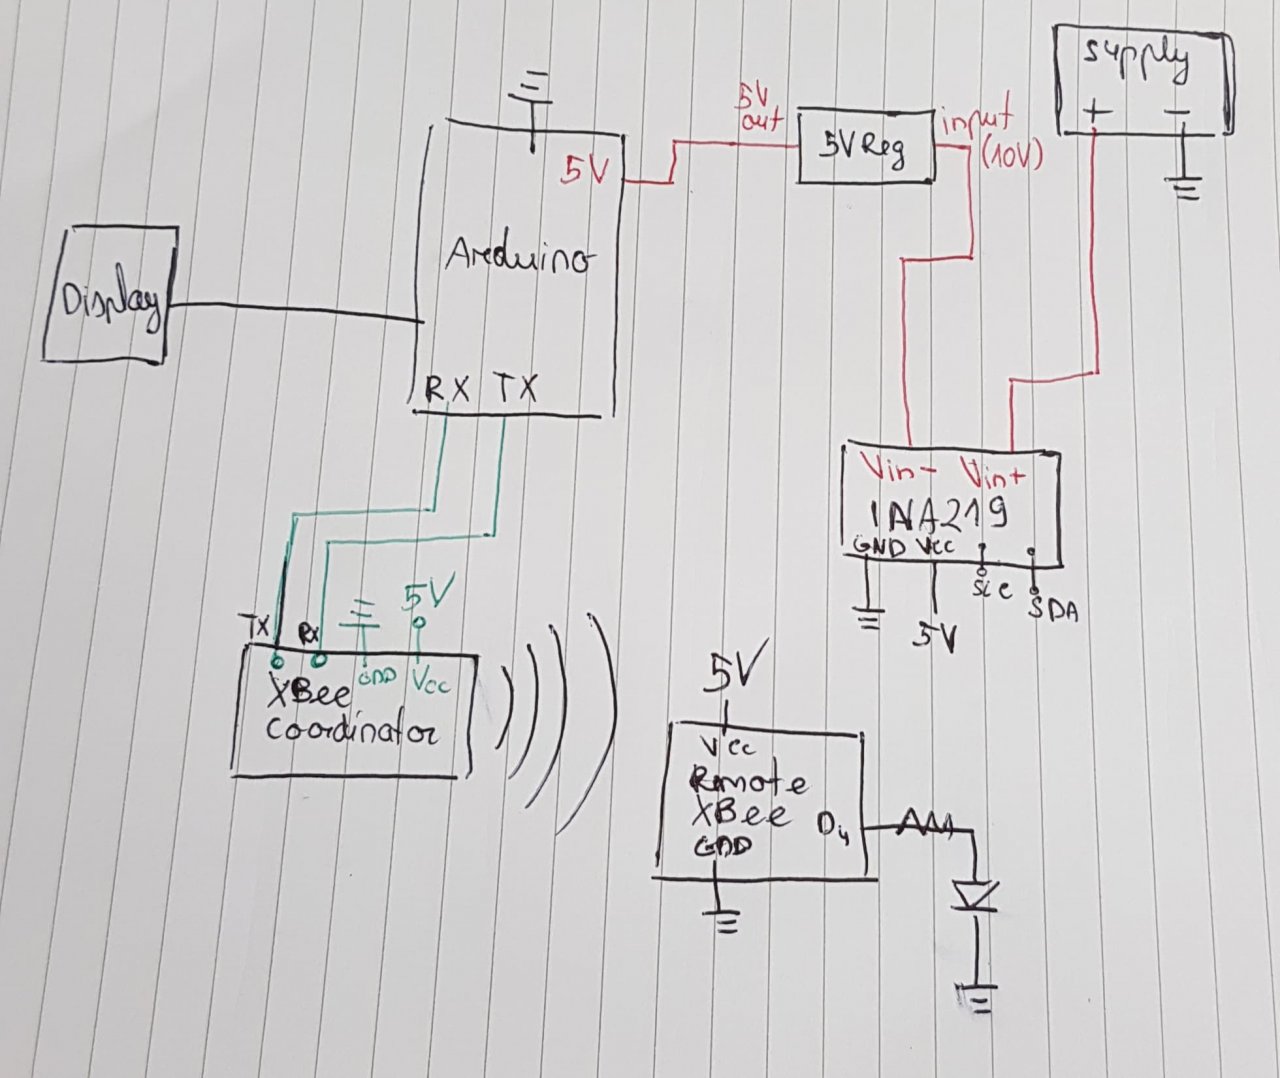 Supply
+ −
5V
out
5V Reg
input
(10V)
5V
Arduino
Display
RX TX
Vin- Vin+
INA219
GND Vcc
SCL
SDA
5V
TX
RX
5V
GND
Vcc
XBee
Coordinator
5V
Vcc
Remote
XBee
D4
GND